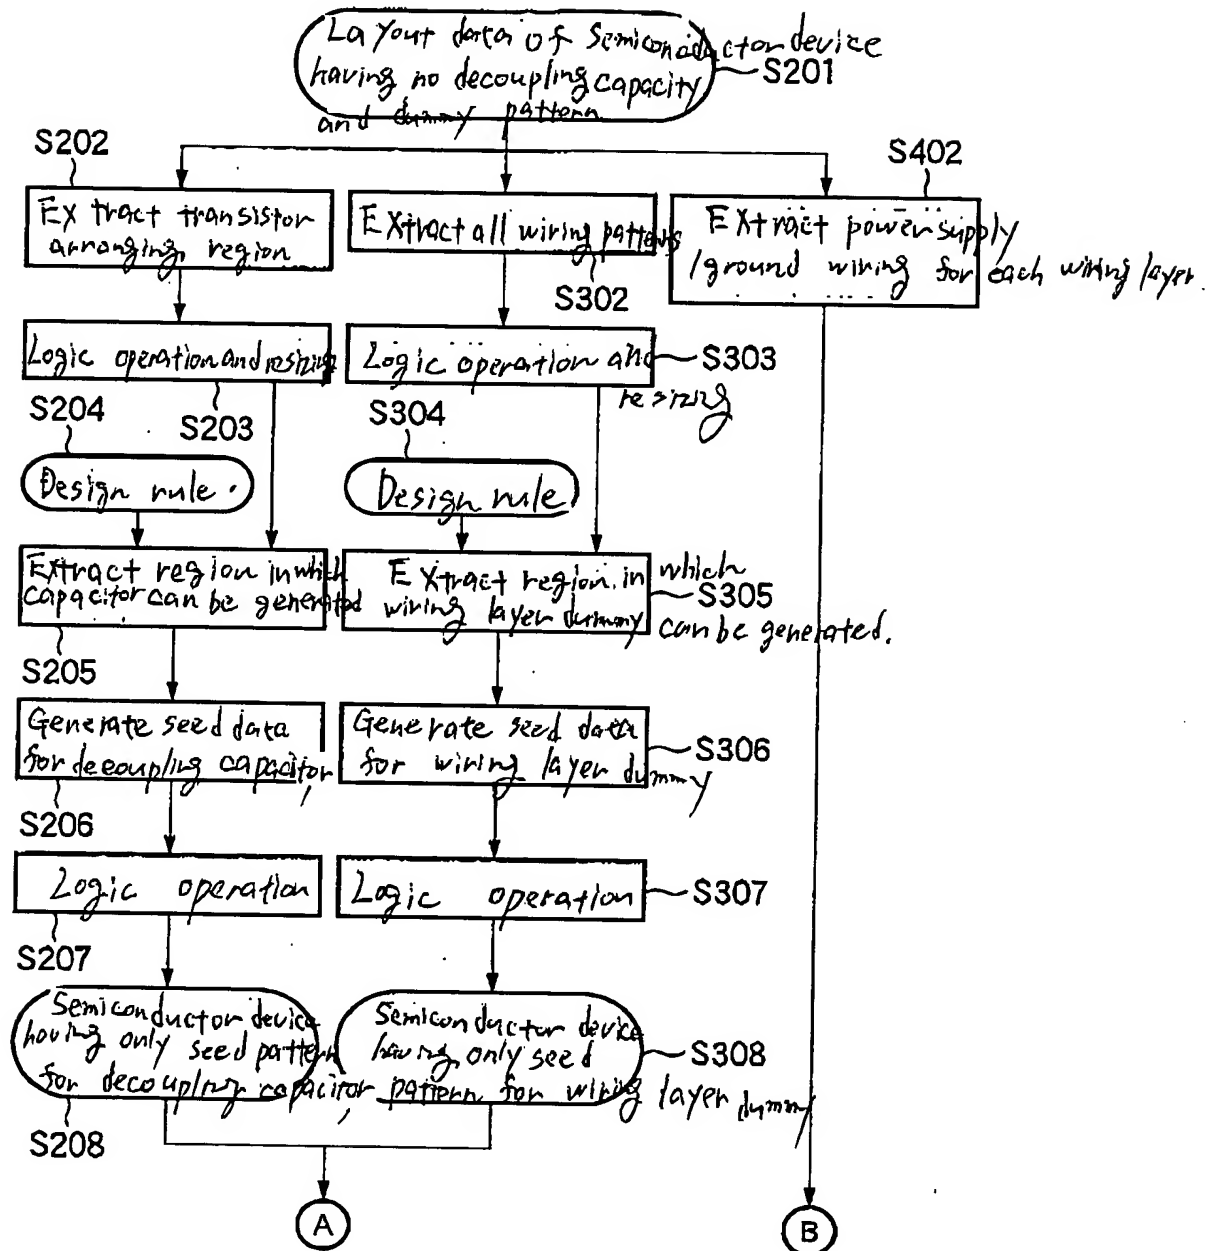 Layout data of Semiconductor device
having no decoupling capacity
and dummy pattern
S201
S202
S402
Extract transistor
arranging region
Extract all wiring patterns
Extract power supply
/ground wiring for each wiring layer.
S302
Logic operation and resizing
Logic operation and
resizing
S303
S204
S203
S304
Design rule.
Design rule
Extract region in which
capacitor can be generated
Extract region in which
wiring layer dummy
can be generated.
S305
S205
Generate seed data
for decoupling capacitor,
Generate seed data
for wiring layer dummy
S306
S206
Logic operation
Logic operation
S307
S207
Semiconductor device
having only seed pattern
for decoupling capacitor,
Semiconductor device
having only seed
pattern for wiring layer dummy
S308
S208
A
B